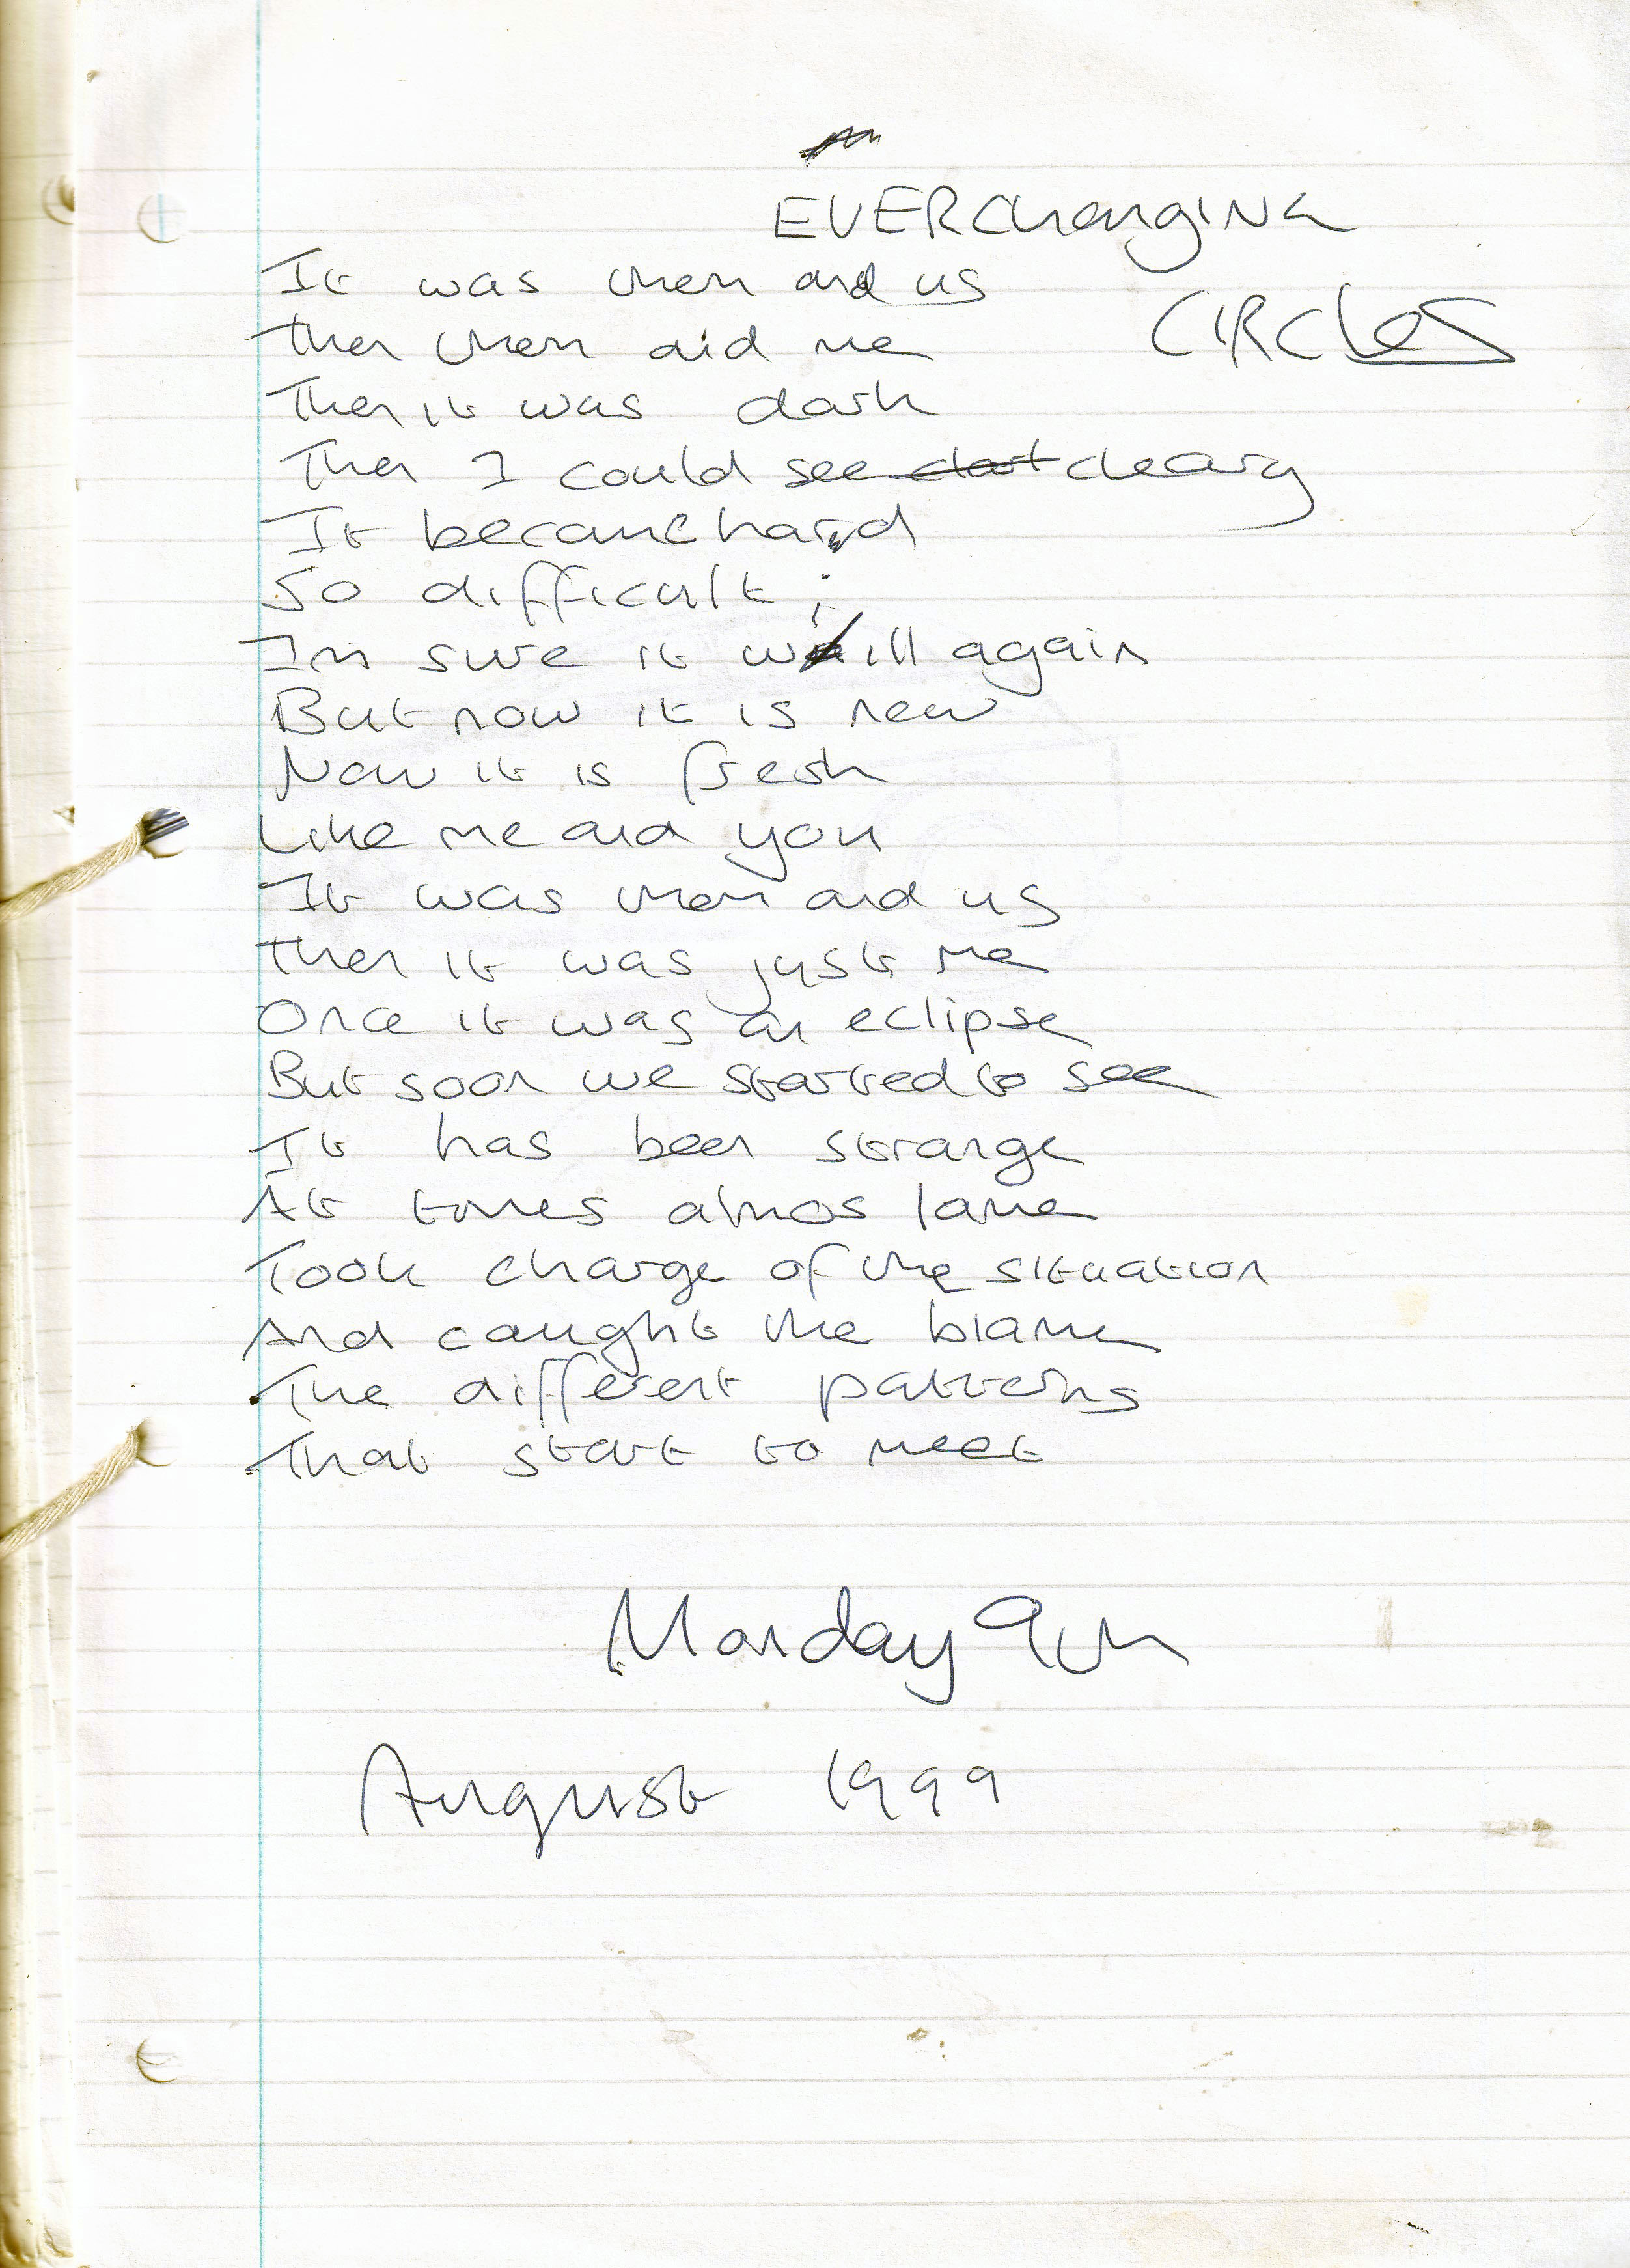 EVERchangING
CIRCles
It was them and us
Then them and me
Then it was dark
Then I could see cleary
It became hard
So difficult;
Im sure it will again
But now it is new
Now it is fresh
Like me and you
It was them and us
Then it was just me
Once it was an eclipse
But soon we started to see
It has been strange
At times almos lame
Took charge of the situation
And caught the blame
The different patterns
That start to meet
Monday 9th
August 1999